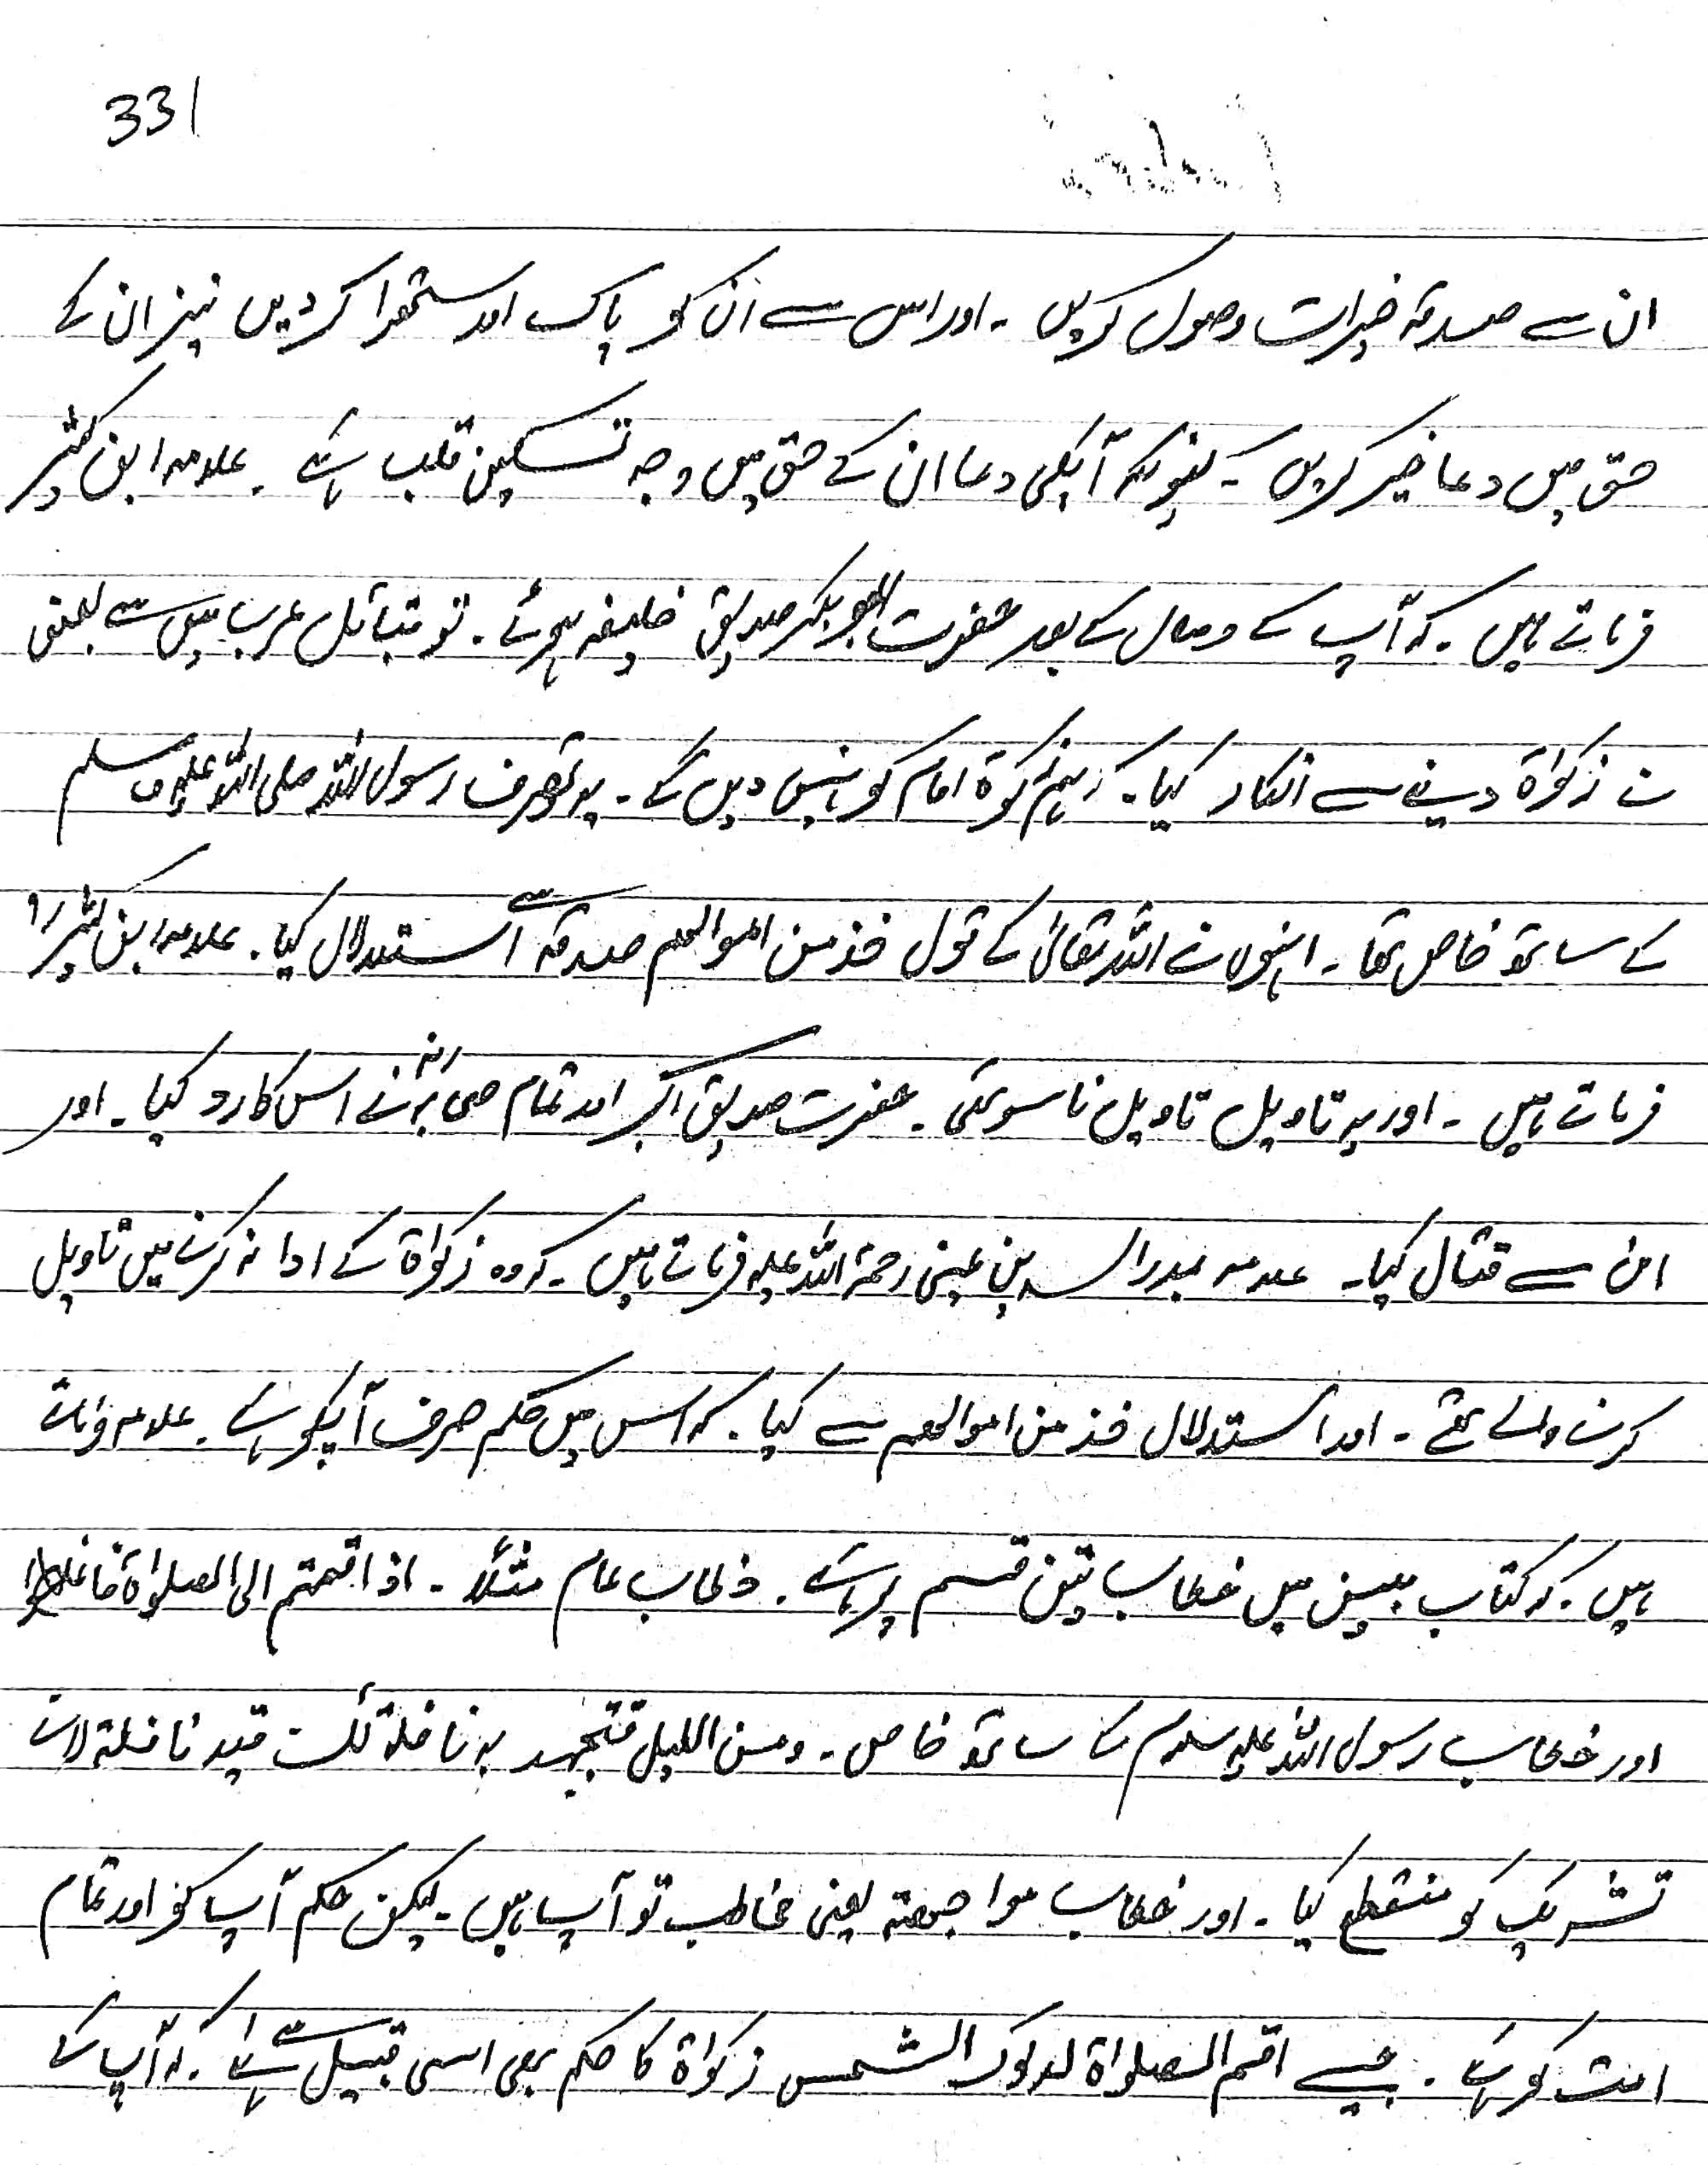 331
ان سے صدقہ خیرات وصول کریں ۔ اور اس سے ان کو پاک اور ستھرا کردیں نیز ان کے
حق میں دعا خیر کریں ۔ کیونکہ آپکی دعا ان کے حق میں وجہ تسکین قلب ہے ۔ علامہ ابن کثیر
فرماتے ہیں ۔ کہ آپ کے وصال کے بعد حضرت ابوبکر صدیق خلیفہ ہوئے ۔ تو قبائل عرب میں سے بعض
نے زکواۃ دینے سے انکار کیا ۔ کہ ہم زکوۃ امام کو نہیں دیں گے ۔ یہ تصرف رسول اللہ صلی اللہ علیہ وسلم
کے ساتھ خاص تھا ۔ انہوں نے اللہ تعالیٰ کے قول خذ من اموالھم صدقہ سے استدلال کیا ۔ علامہ ابن کثیر
فرماتے ہیں ۔ اور یہ تاویل تاویل فاسد تھی ۔ حضرت صدیق اکبر اور تمام صحابہ نے اس کا رد کیا ۔ اور
ان سے قتال کیا ۔ علامہ بدرالدین عینی رحمۃ اللہ علیہ فرماتے ہیں ۔ کہ وہ زکواۃ کے ادا نہ کرنے میں تاویل
کرنے والے تھے ۔ اور استدلال خذ من اموالھم سے کیا ۔ کہ اس میں حکم صرف آپکو ہے ۔ علامہ فرماتے
ہیں ۔ کہ کتاب مبین میں خطاب تین قسم پر ہے ۔ خطاب عام مثلاً ۔ اذا قمتم الی الصلواۃ فاغلسوا
اور خطاب رسول اللہ علیہ سلام کے ساتھ خاص ۔ ومن اللیل فتہجد بہ نافلۃ لک قید نافلۃ لانے
تشریک کو منقطع کیا ۔ اور خطاب مواجھتہ یعنی مخاطب تو آپ ہیں ۔ لیکن حکم آپ کو اور تمام
امت کو ہے ۔ جیسے اقم الصلواۃ لدلوک الشمس زکواۃ کا حکم بھی اسی قبیل سے ہے ۔ کہ آپ کے